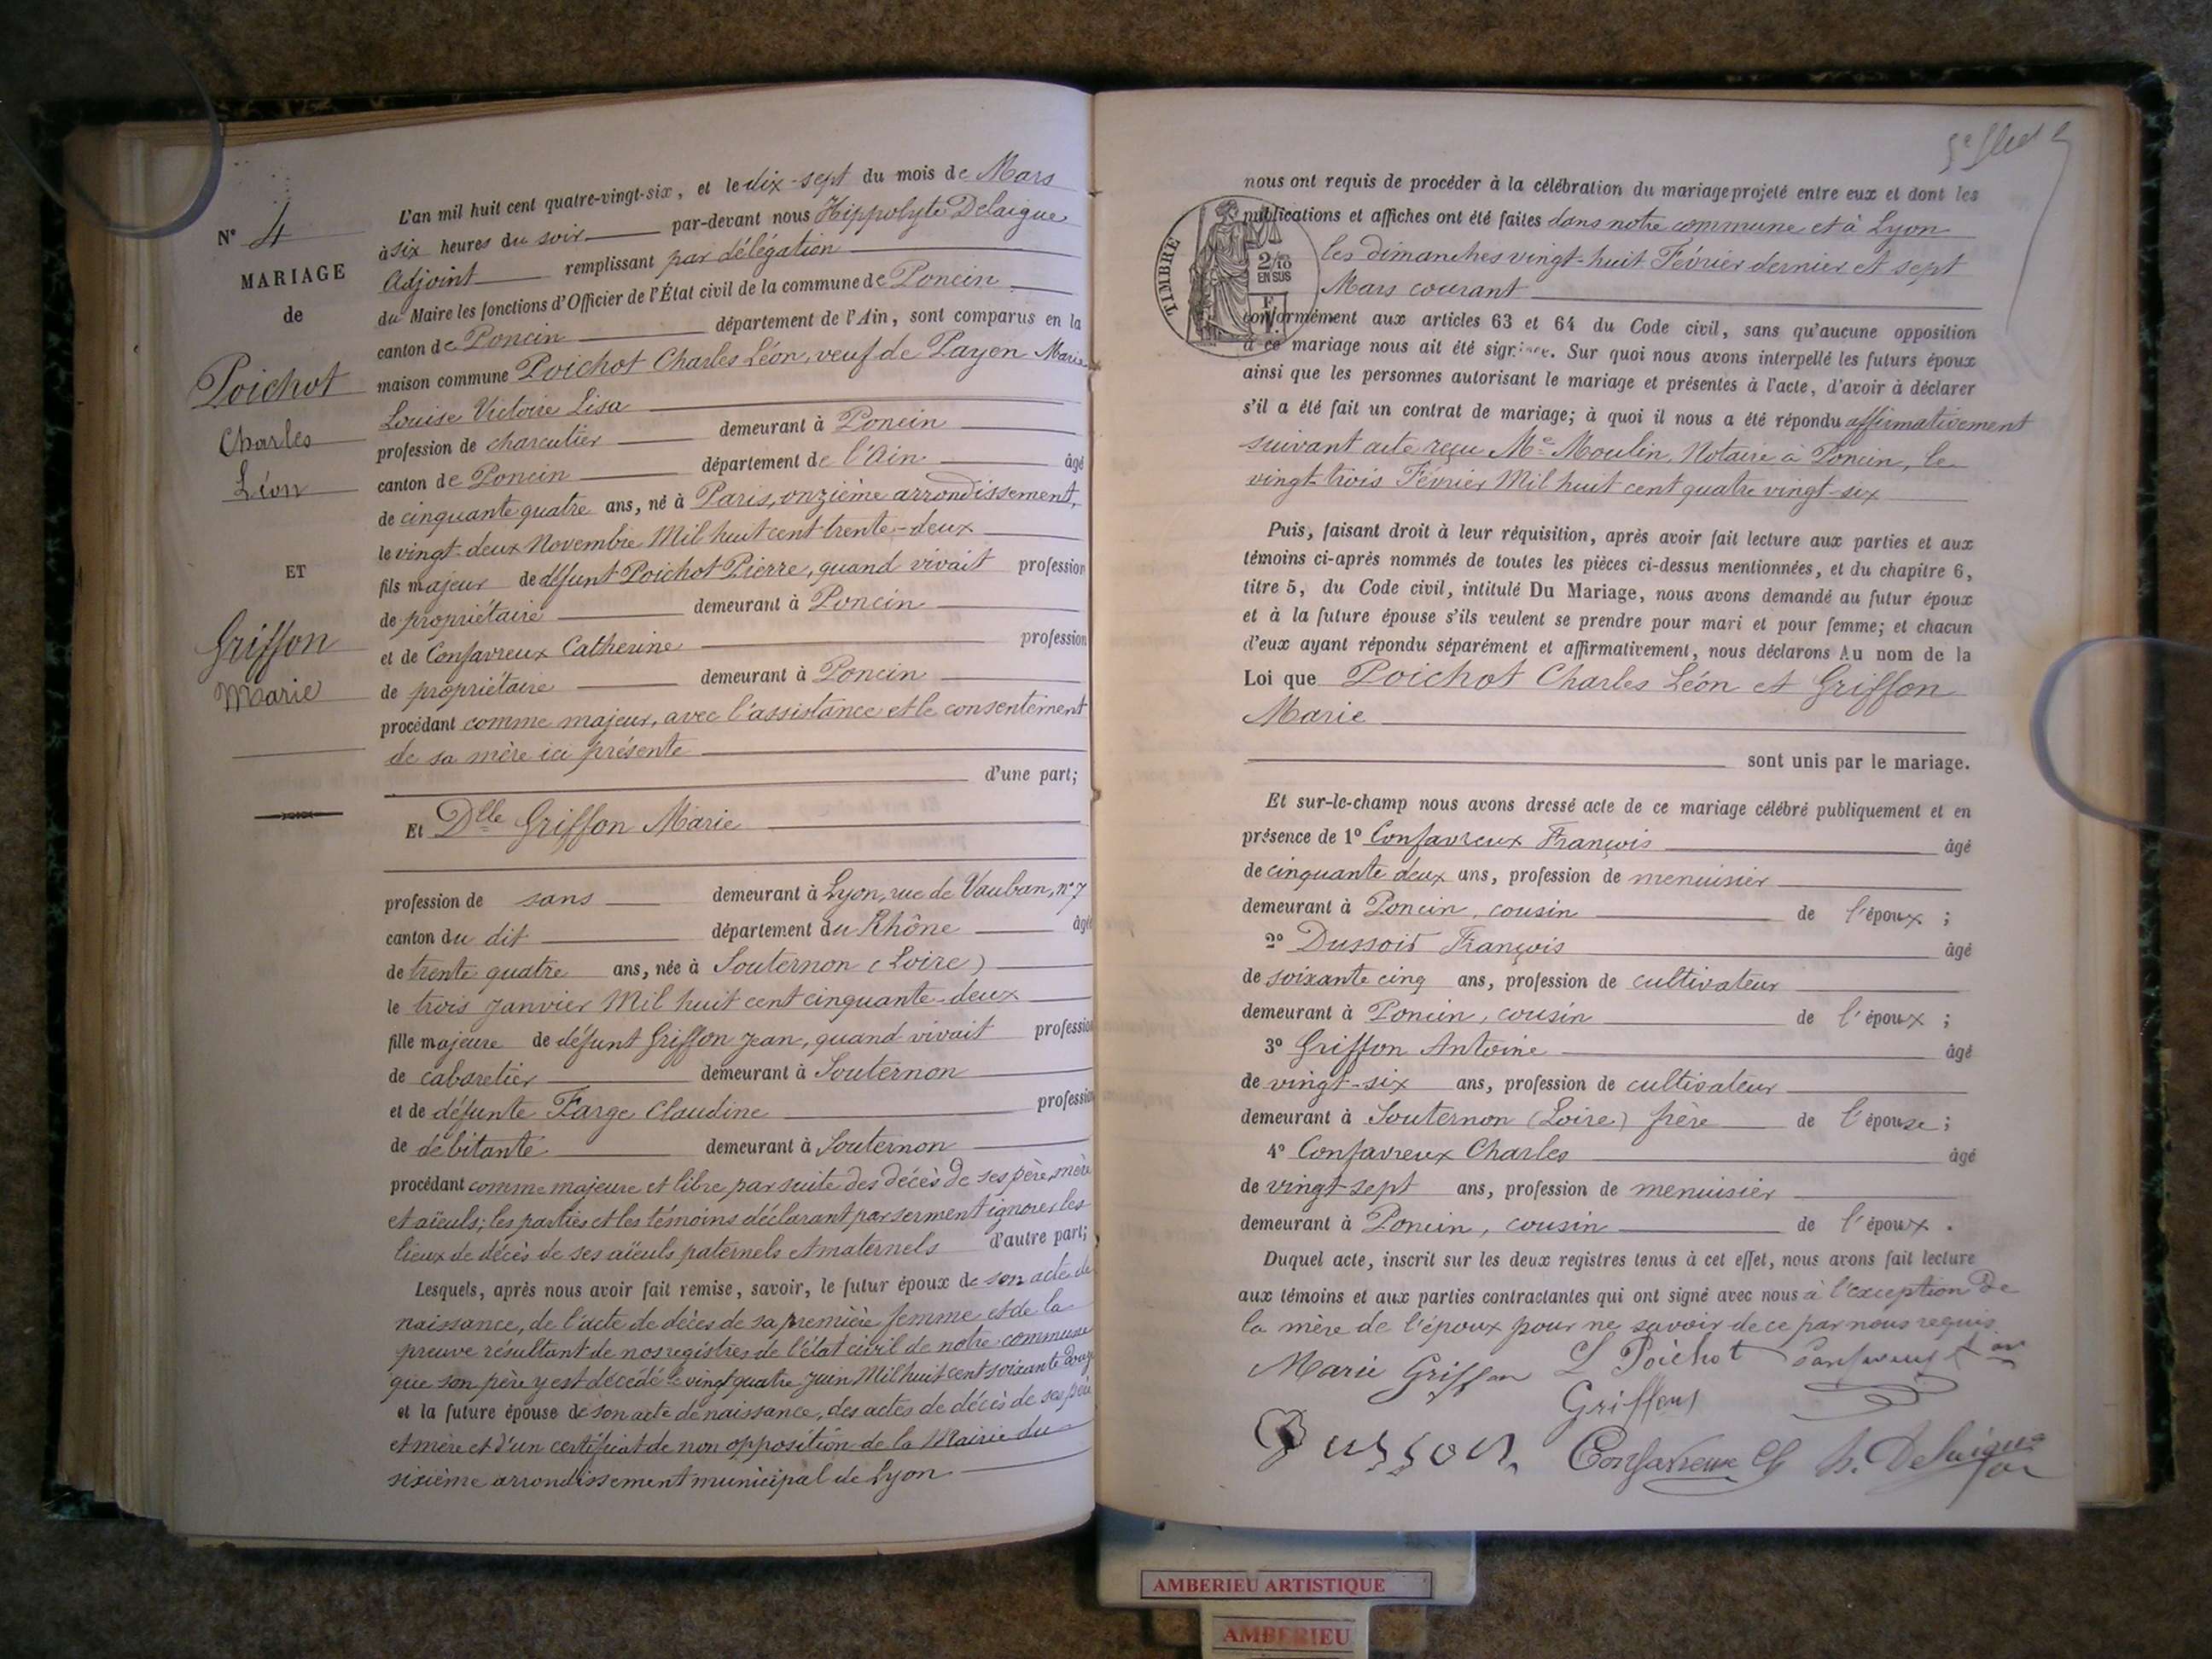 N° 4
MARIAGE
de
Poichot
Charles
Léon
ET
Griffon
Marie
L'an mil huit cent quatre-vingt-six, et le dix-sept du mois de Mars
à six heures du soir par-devant nous Hippolyte Delaigue
Adjoint remplissant par délégation
du Maire les fonctions d'Officier de l'État civil de la commune de Poncin
canton de Poncin département de l'Ain, sont comparus en la
maison commune Poichot Charles Léon, veuf de Payen Marie
Louise Victoire Lisa
profession de charcutier demeurant à Poncin
canton de Poncin département de l'Ain âgé
de cinquante quatre ans, né à Paris, onzième arrondissement,
le vingt-deux Novembre Mil huit cent trente-deux
fils majeur de défunt Poichot Pierre, quand vivait profession
de propriétaire demeurant à Poncin
et de Confavreux Catherine profession
de propriétaire demeurant à Poncin
procédant comme majeur, avec l'assistance et le consentement
de sa mère ici présente
d'une part;
Et Dlle Griffon Marie
profession de sans demeurant à Lyon, rue de Vauban, n° 7
canton du dit département du Rhône âgée
de trente quatre ans, née à Souternon (Loire)
le trois Janvier Mil huit cent cinquante-deux
fille majeure de défunt Griffon Jean, quand vivait profession
de cabaretier demeurant à Souternon
et de défunte Farge Claudine profession
de débitante demeurant à Souternon
procédant comme majeure et libre par suite des décès de ses père, mère
et aïeuls; les parties et les témoins déclarant par serment ignorer les
lieux de décès de ses aïeuls paternels et maternels d'autre part;
Lesquels, après nous avoir fait remise, savoir, le futur époux de son acte de
naissance, de l'acte de décès de sa première femme et de la
preuve résultant de nos registres de l'état civil de notre commune
que son père y est décédé le vingt quatre Juin Mil huit cent soixante douze
et la future épouse de son acte de naissance, des actes de décès de ses père
et mère et d'un certificat de non opposition de la Mairie du
sixième arrondissement municipal de Lyon
nous ont requis de procéder à la célébration du mariage projeté entre eux et dont les
publications et affiches ont été faites dans notre commune et à Lyon
les dimanches vingt-huit Février dernier et sept
Mars courant
TIMBRE
2/10
EN SUS
conformément aux articles 63 et 64 du Code civil, sans qu'aucune opposition
à ce mariage nous ait été signifiée. Sur quoi nous avons interpellé les futurs époux
ainsi que les personnes autorisant le mariage et présentes à l'acte, d'avoir à déclarer
s'il a été fait un contrat de mariage; à quoi il nous a été répondu affirmativement
suivant acte reçu Me Moulin, Notaire à Poncin, le
vingt-trois Février Mil huit cent quatre vingt-six
Puis, faisant droit à leur réquisition, après avoir fait lecture aux parties et aux
témoins ci-après nommés de toutes les pièces ci-dessus mentionnées, et du chapitre 6,
titre 5, du Code civil, intitulé Du Mariage, nous avons demandé au futur époux
et à la future épouse s'ils veulent se prendre pour mari et pour femme; et chacun
d'eux ayant répondu séparément et affirmativement, nous déclarons Au nom de la
Loi que Poichot Charles Léon et Griffon
Marie
sont unis par le mariage.
Et sur-le-champ nous avons dressé acte de ce mariage célébré publiquement et en
présence de 1° Confavreux François âgé
de cinquante deux ans, profession de menuisier
demeurant à Poncin, cousin de l'époux;
2° Dussoid François âgé
de soixante cinq ans, profession de cultivateur
demeurant à Poncin, cousin de l'époux;
3° Griffon Antoine âgé
de vingt-six ans, profession de cultivateur
demeurant à Souternon (Loire) frère de l'épouse;
4° Confavreux Charles âgé
de vingt-sept ans, profession de menuisier
demeurant à Poncin, cousin de l'époux.
Duquel acte, inscrit sur les deux registres tenus à cet effet, nous avons fait lecture
aux témoins et aux parties contractantes qui ont signé avec nous à l'exception de
la mère de l'époux pour ne savoir de ce par nous requis
Marie Griffon L Poichot
Griffon
Confavreux Ch h. Delaigue
AMBERIEU ARTISTIQUE
AMBERIEU